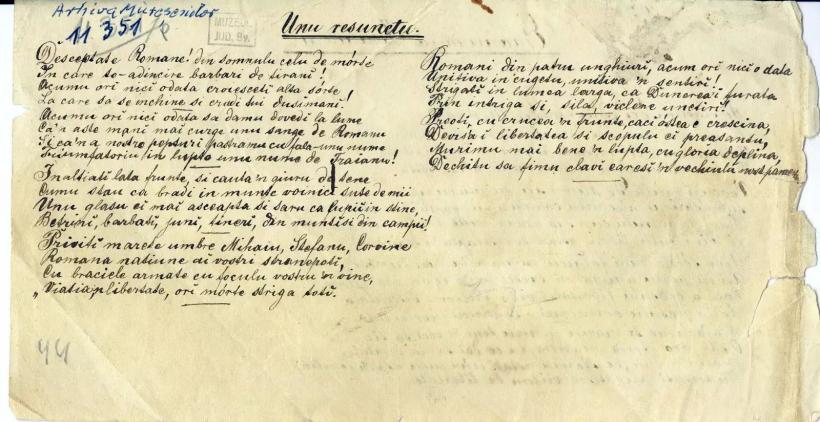 Arhiva Muresenilor
11 351
MUZEUL
JUD. BV.
Unu resunetu.
Desceptate Romane! din somnulu celu de mórte
In care te-adîncire barbari de tirani!
Acumu ori nici odata croiesceti alta sórte!
La care sa se inchine si crudii tui dusimani!
Acumu ori nici odata sa damu dovedi la lume
Ca'n aste mani mai curge unu sange de Romanu
Si ca'n a nostre pepturi pastramu cu fala-unu nume
in lupta unu nume de Traianu!
Inaltiati lata frunte, si cauta 'n giuru de tene
Cumu stau ca bradi in munte voinici sute de mii
Unu glasu ei mai ascepta si saru ca lupii in stine,
Betrini, barbati, juni, tineri, din munti si din campii!
Priviti marete umbre Mihaiu, Stefanu, Corvine
Romana natiune ai vostri stranepoti,
Cu braciele armate cu foculu vostru 'n vine,
„Viatia'n libertate, ori mórte striga toti.
Romani din patru unghiuri, acum ori nici o data
Uniti-va in cugetu, uniti-va 'n sentiri!
Strigati in lumea larga, ca Dunarea-i furata
Prin intriga si, sila, viclene uneltiri!
Preoti, cu crucea 'n frunte, caci óstea e crescina,
Devisa-i libertatea si scopulu ei preasantu,
Murimu mai bene 'n lupta, cu gloria deplina,
Dechitu sa fimu sclavi earesi 'n vechiulu nost
44